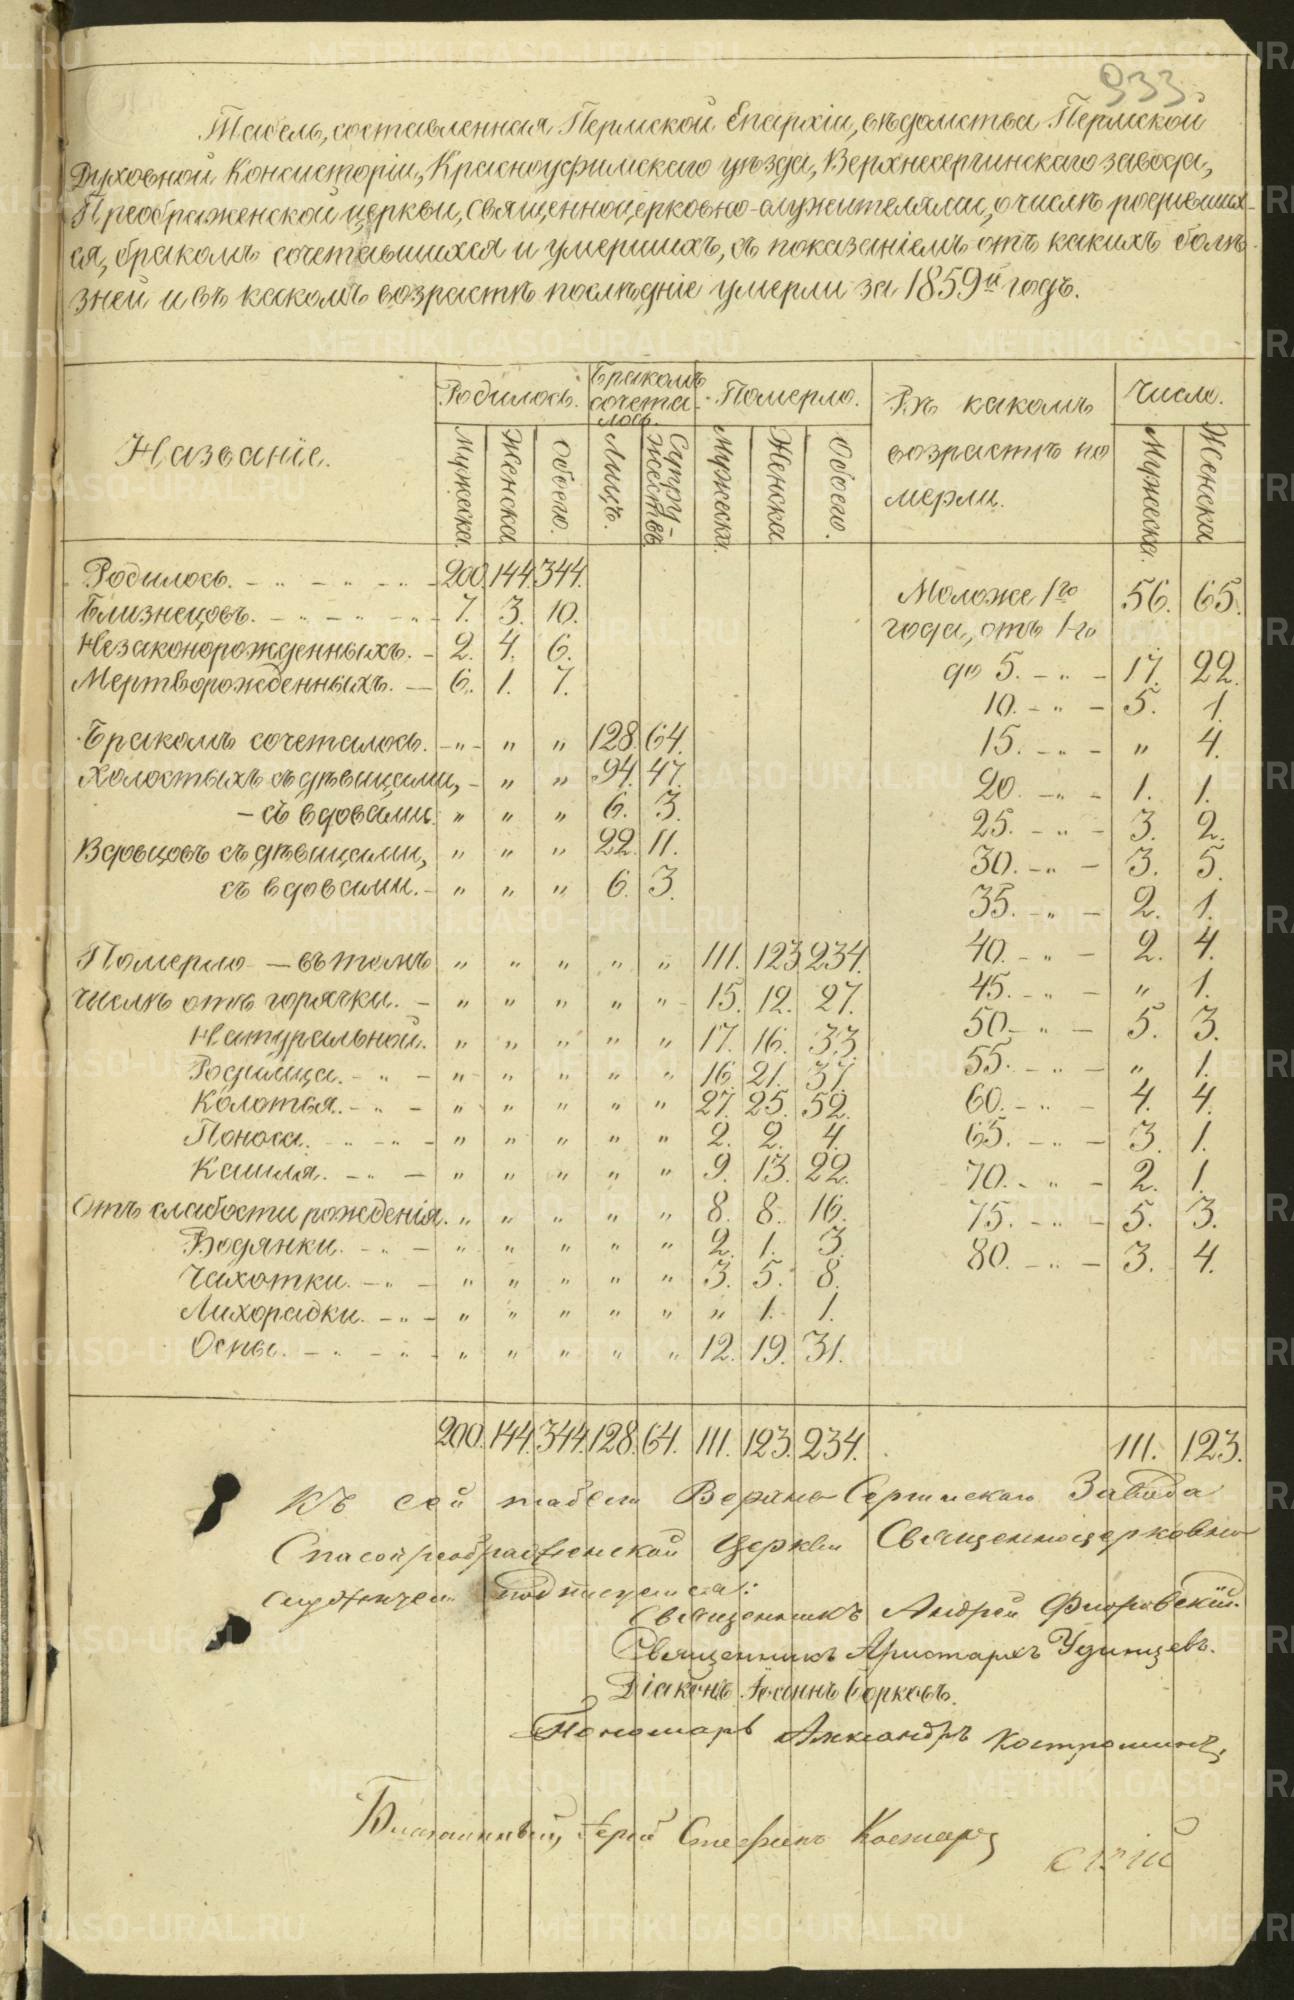 933
Табель, составленная Пермской Епархіи, вѣдомства Пермской
Духовной Консисторіи, Красноуфимскаго уѣзда, Верхнесергинскаго завода,
Преображенской церкви, священноцерковно-служителями, о числѣ родивших-
ся, бракомъ сочетавшихся и умершихъ, съ показаніемъ отъ какихъ болѣ-
зней и въ какомъ возрастѣ послѣдніе умерли за 1859й годъ.
Названіе. Родилось. Бракомъ сочета-лось. Померло. Въ какомъ возрастѣ по мерли. Число.
Мужеска. Женска. Обоего. Лицъ. Супру-жествъ. Мужеска. Женска. Обоего. Мужеска. Женска
Родилось. - „ - „ - „ - 200. 144. 344.
Близнецовъ. - „ - „ - „ - 7. 3. 10.
Незаконорожденныхъ. - 2. 4. 6.
Мертворожденныхъ. - 6. 1. 7.
Бракомъ сочеталось. - „ - „ „ 128. 64.
Холостыхъ съ дѣвицами, - „ „ 94. 47.
- съ вдовами. „ „ „ 6. 3.
Вдовцовъ съ дѣвицами, „ „ „ 22. 11.
съ вдовами. - „ „ „ 6. 3.
Померло - въ томъ „ „ „ „ „ 111. 123. 234.
числѣ отъ горячки. - „ „ „ „ „ 15. 12. 27.
Натуральной. „ „ „ „ „ 17. 16. 33.
Родимца. - „ - „ „ „ „ „ 16. 21. 37.
Колотья. - „ - „ „ „ „ „ 27. 25. 52.
Поноса. - „ - „ „ „ „ „ 2. 2. 4.
Кашля. - „ - „ „ „ „ „ 9. 13. 22.
Отъ слабости рожденія. „ „ „ „ „ 8. 8. 16.
Водянки. - „ - „ „ „ „ „ 2. 1. 3.
Чахотки. - „ - „ „ „ „ „ 3. 5. 8.
Лихорадки. - „ - „ „ „ „ „ „ 1. 1.
Оспы. - „ - „ - „ „ „ „ „ 12. 19. 31.
Моложе 1го 56. 65.
года, отъ 1-го
до 5. - „ - 17. 22.
10. - „ - 5. 1.
15. - „ - „ 4.
20. - „ - 1. 1.
25. - „ - 3. 2.
30. - „ - 3. 5.
35. - „ - 2. 1.
40. - „ - 2. 4.
45. - „ - „ 1.
50. - „ - 5. 3.
55. - „ - „ 1.
60. - „ - 4. 4.
65. - „ - 3. 1.
70. - „ - 2. 1.
75. - „ - 5. 3.
80. - „ - 3. 4.
200. 144. 344. 128. 64. 111. 123. 234. 111. 123.
Къ сей табели Верхне Сергинскаго Завода
Спасопреображенской Церкви Священноцерковно
служители подписуемся:
Священникъ Андрей Флоровскій.
Священникъ Аристархъ Удинцевъ.
Діаконъ Іоаннъ Борковъ.
Пономарь Александръ Костроминъ,
Благочинный, Іерей Стефанъ
METRIKI.GASO-URAL.RU